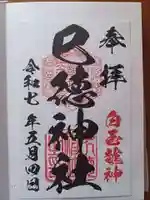 奉拝
巳徳神社
白玉龍神
令和七年五月四日